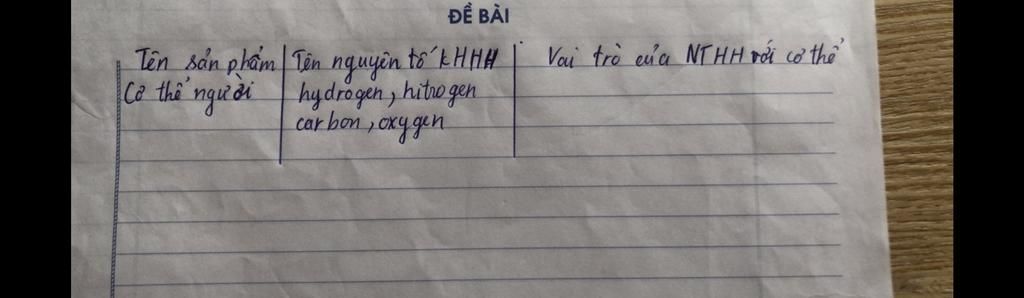 ĐỀ BÀI
Tên sản phẩm | Tên nguyên tố KHHH | Vai trò của NTHH với cơ thể
Cơ thể người | hydrogen, hitrogen
carbon, oxygen